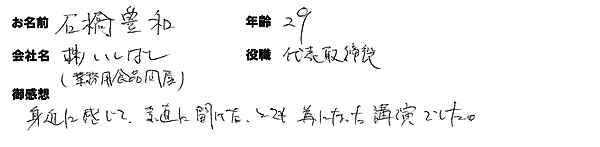 お名前 石橋豊和 年齢 29
会社名 株いしばし 役職 代表取締役
(業務用食品問屋)
御感想
身近に感じて、素直に聞けた、とても為になった講演でした。